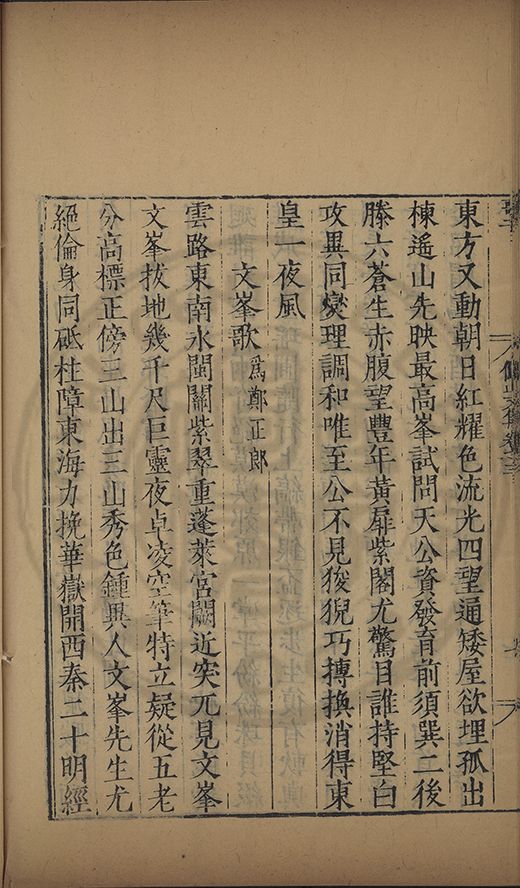 東方又動朝日紅耀色流光四望通矮屋欲埋孤出
棟遙山先映最高峯試問天公資發育前須巽二後
滕六蒼生赤腹望豐年黃扉紫閣尤驚目誰持堅白
攻異同燮理調和唯至公不見狻猊巧摶換消得東
皇一夜風
文峯歌爲鄭正郎
雲路東南水閩關紫翠重蓬萊宮闕近突兀見文峯
文峯拔地幾千尺巨靈夜卓凌空筆特立疑從五老
分高標正傍三山出三山秀色鍾異人文峯先生尤
絕倫身同砥柱障東海力挽華嶽開西秦二十明經